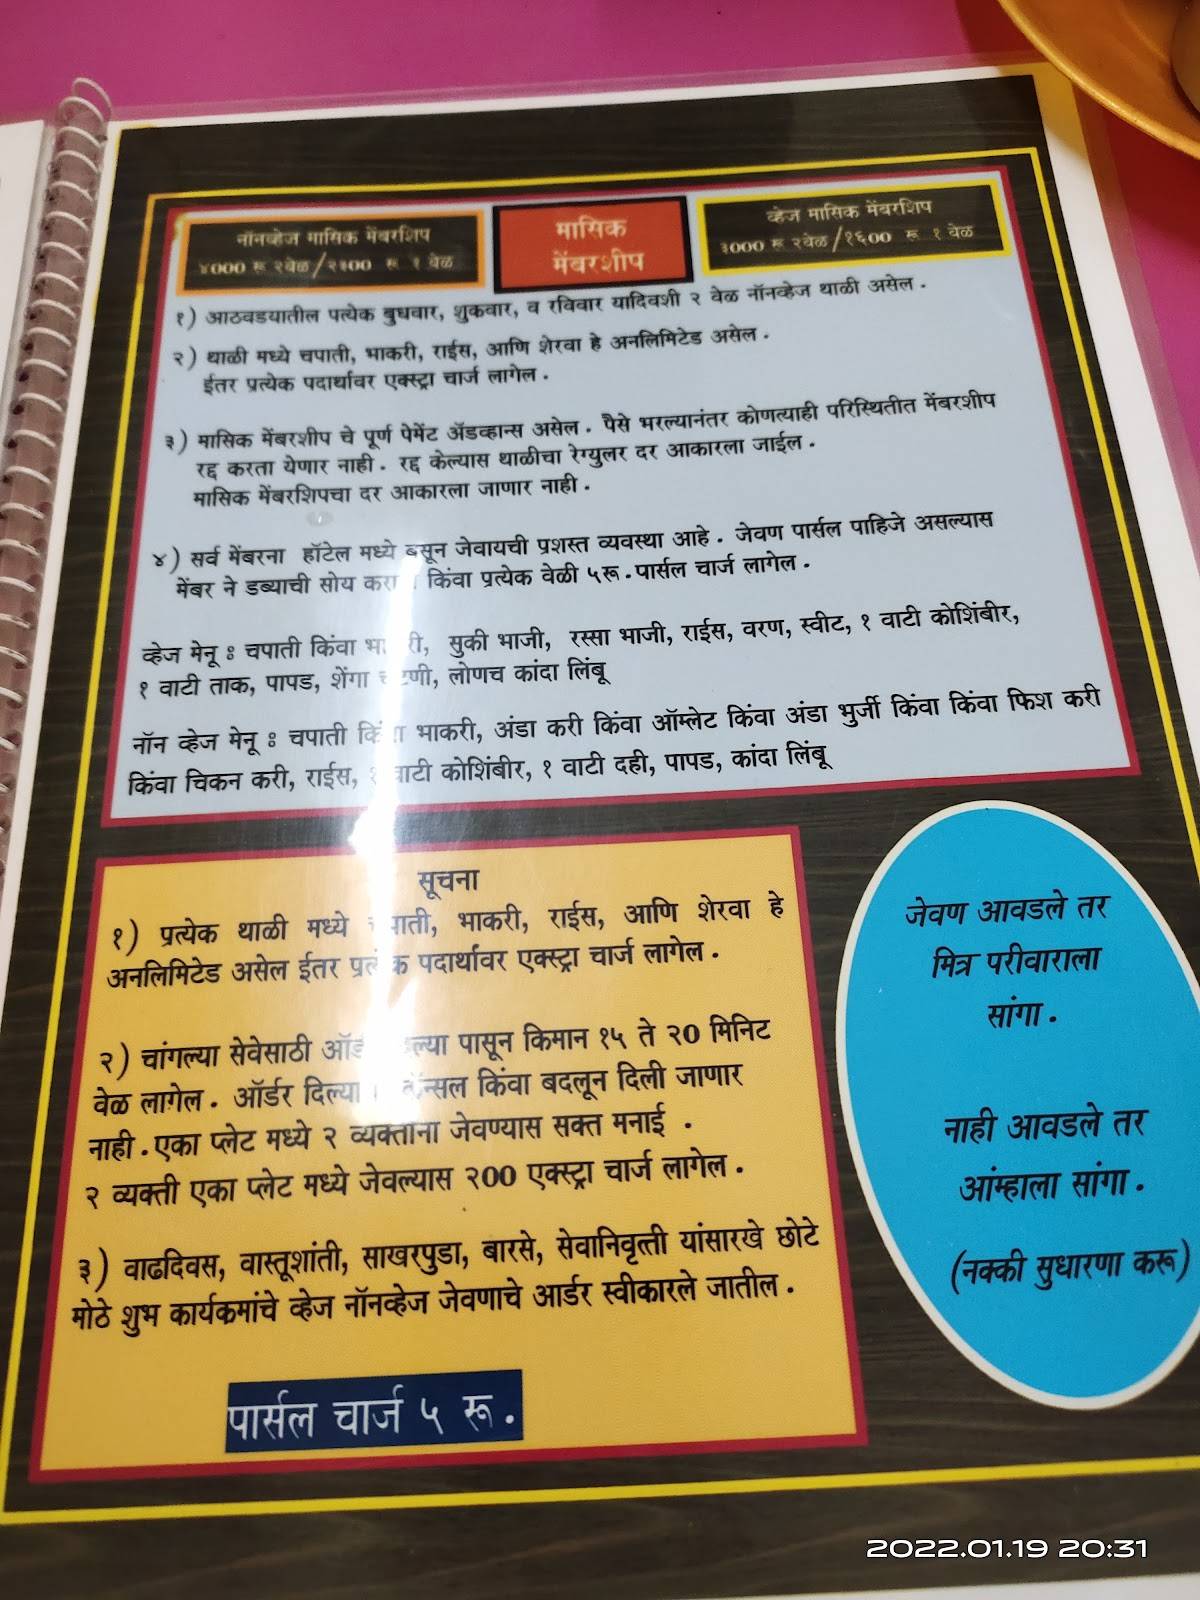 नॉनव्हेज मासिक मेंबरशिप
४००० रू २वेळ/२१०० रू १ वेळ
मासिक
मेंबरशीप
व्हेज मासिक मेंबरशिप
३००० रू २वेळ/१६०० रू १ वेळ
१) आठवडयातील पत्येक बुधवार, शुकवार, व रविवार यादिवशी २ वेळ नॉनव्हेज थाळी असेल.
२) थाळी मध्ये चपाती, भाकरी, राईस, आणि शेरवा हे अनलिमिटेड असेल.
ईतर प्रत्येक पदार्थावर एक्स्ट्रा चार्ज लागेल.
३) मासिक मेंबरशिप चे पूर्ण पेमेंट ॲडव्हान्स असेल. पैसे भरल्यानंतर कोणत्याही परिस्थितीत मेंबरशीप
रद्द करता येणार नाही. रद्द केल्यास थाळीचा रेग्युलर दर आकारला जाईल.
मासिक मेंबरशिपचा दर आकारला जाणार नाही.
४) सर्व मेंबरना हॉटेल मध्ये बसून जेवायची प्रशस्त व्यवस्था आहे. जेवण पार्सल पाहिजे असल्यास
मेंबर ने डब्याची सोय किंवा प्रत्येक वेळी ५रू.पार्सल चार्ज लागेल.
व्हेज मेनू : चपाती किंवा भाकरी, सुकी भाजी, रस्सा भाजी, राईस, वरण, स्वीट, १ वाटी कोशिंबीर,
१ वाटी ताक, पापड, शेंगा चटणी, लोणच कांदा लिंबू
नॉन व्हेज मेनू : चपाती किंवा भाकरी, अंडा करी किंवा ऑम्लेट किंवा अंडा भुर्जी किंवा किंवा फिश करी
किंवा चिकन करी, राईस, १ वाटी कोशिंबीर, १ वाटी दही, पापड, कांदा लिंबू
सूचना
१) प्रत्येक थाळी मध्ये चपाती, भाकरी, राईस, आणि शेरवा हे
अनलिमिटेड असेल ईतर प्रत्येक पदार्थावर एक्स्ट्रा चार्ज लागेल.
२) चांगल्या सेवेसाठी पासून किमान १५ ते २० मिनिट
वेळ लागेल. ऑर्डर कॅन्सल किंवा बदलून दिली जाणार
नाही.एका प्लेट मध्ये २ व्यक्तींना जेवण्यास सक्त मनाई .
२ व्यक्ती एका प्लेट मध्ये जेवल्यास २०० एक्स्ट्रा चार्ज लागेल.
३) वाढदिवस, वास्तूशांती, साखरपुडा, बारसे, सेवानिवृत्ती यांसारखे छोटे
मोठे शुभ कार्यकमांचे व्हेज नॉनव्हेज जेवणाचे आर्डर स्वीकारले जातील.
पार्सल चार्ज ५ रू.
जेवण आवडले तर
मित्र परीवाराला
सांगा.
नाही आवडले तर
आंम्हाला सांगा.
(नक्की सुधारणा करू)
2022.01.19 20:31